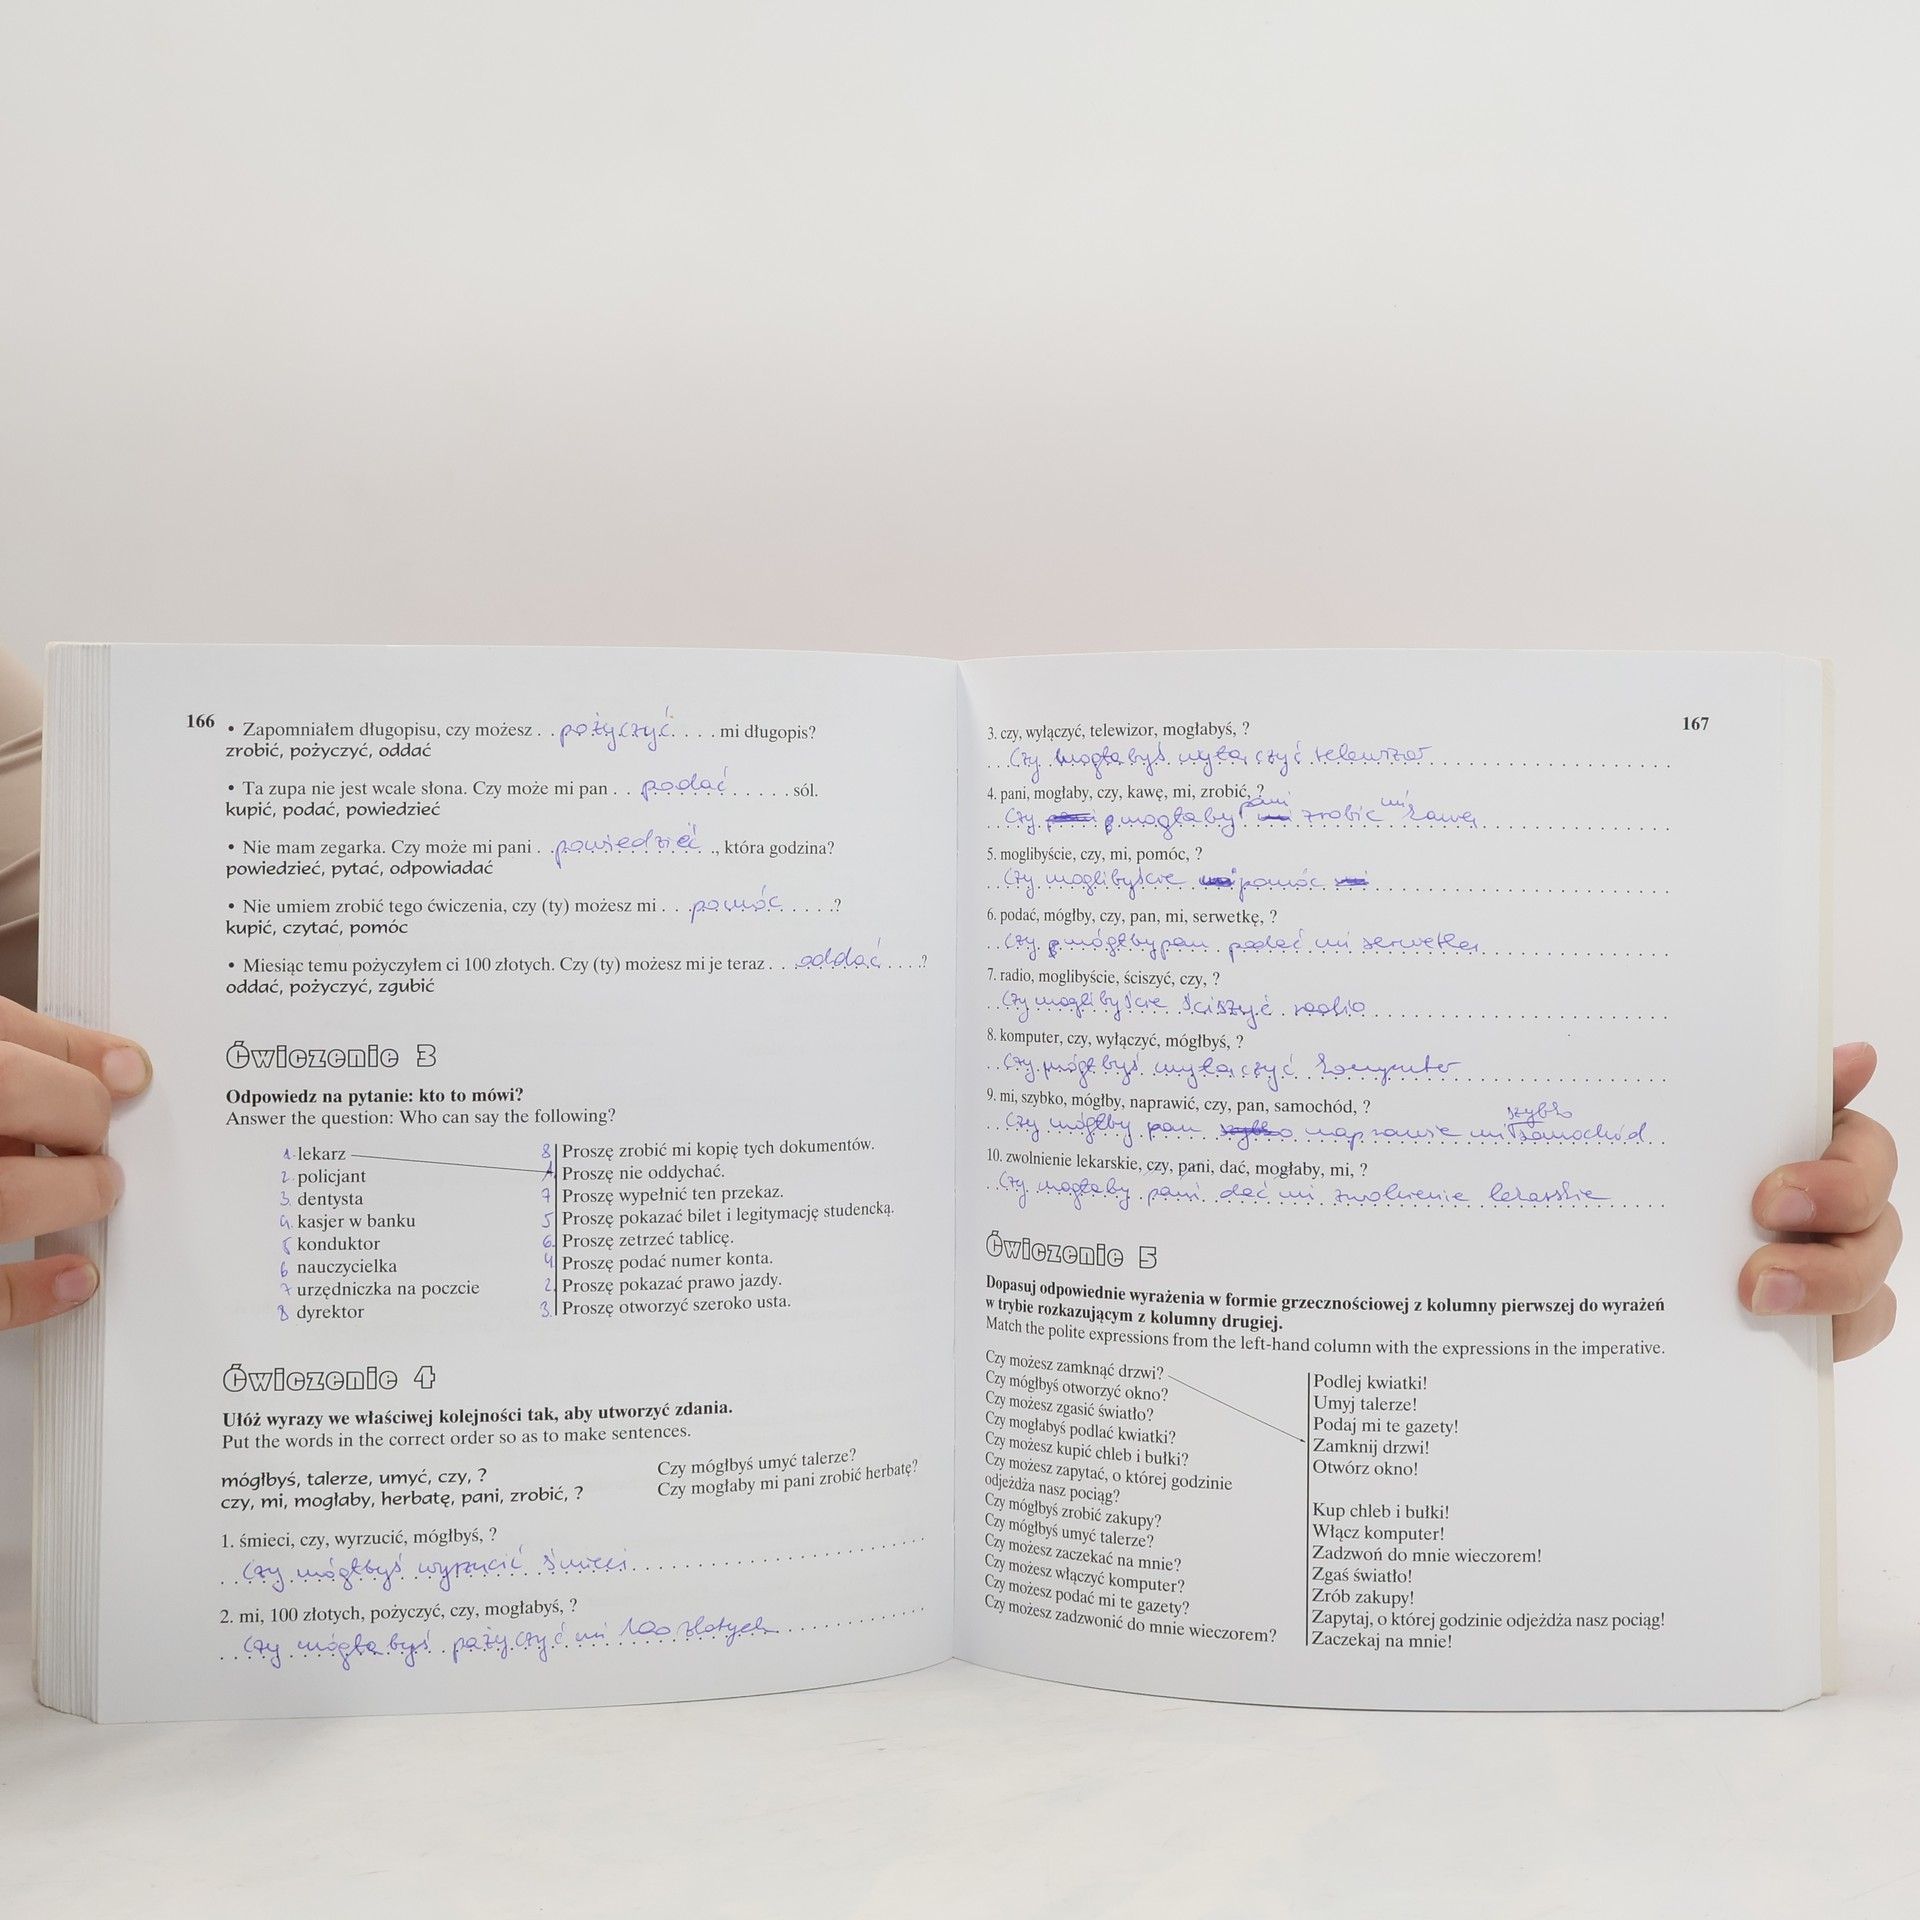 166
• Zapomniałem długopisu, czy możesz . . pożyczyć. . . . mi długopis?
zrobić, pożyczyć, oddać
• Ta zupa nie jest wcale słona. Czy może mi pan . . podać . . . . . sól.
kupić, podać, powiedzieć
• Nie mam zegarka. Czy może mi pani . .powiedzieć . ., która godzina?
powiedzieć, pytać, odpowiadać
• Nie umiem zrobić tego ćwiczenia, czy (ty) możesz mi . . .pomóc . . . . .?
kupić, czytać, pomóc
• Miesiąc temu pożyczyłem ci 100 złotych. Czy (ty) możesz mi je teraz . . .oddać . . . .?
oddać, pożyczyć, zgubić
Ćwiczenie 3
Odpowiedz na pytanie: kto to mówi?
Answer the question: Who can say the following?
1. lekarz
2. policjant
3. dentysta
4. kasjer w banku
5 konduktor
6 nauczycielka
7 urzędniczka na poczcie
8 dyrektor
8 Proszę zrobić mi kopię tych dokumentów.
1 Proszę nie oddychać.
7 Proszę wypełnić ten przekaz.
5 Proszę pokazać bilet i legitymację studencką.
6. Proszę zetrzeć tablicę.
4 Proszę podać numer konta.
2. Proszę pokazać prawo jazdy.
3. Proszę otworzyć szeroko usta.
Ćwiczenie 4
Ułóż wyrazy we właściwej kolejności tak, aby utworzyć zdania.
Put the words in the correct order so as to make sentences.
mógłbyś, talerze, umyć, czy, ? Czy mógłbyś umyć talerze?
czy, mi, mogłaby, herbatę, pani, zrobić, ? Czy mogłaby mi pani zrobić herbatę?
1. śmieci, czy, wyrzucić, mógłbyś, ?
Czy mógłbyś wyrzucić śmieci
2. mi, 100 złotych, pożyczyć, czy, mogłabyś, ?
Czy mógłabyś pożyczyć mi 100 złotych
167
3. czy, wyłączyć, telewizor, mogłabyś, ?
Czy mogłabyś wyłączyć telewizor
4. pani, mogłaby, czy, kawę, mi, zrobić, ?
Czy mogłaby pani zrobić mi kawę
5. moglibyście, czy, mi, pomóc, ?
Czy moglibyście mi pomóc
6. podać, mógłby, czy, pan, mi, serwetkę, ?
Czy mógłby pan podać mi serwetkę
7. radio, moglibyście, ściszyć, czy, ?
Czy moglibyście ściszyć radio
8. komputer, czy, wyłączyć, mógłbyś, ?
Czy mógłbyś wyłączyć komputer
9. mi, szybko, mógłby, naprawić, czy, pan, samochód, ?
Czy mógłby pan szybko naprawić mi szybko samochód
10. zwolnienie lekarskie, czy, pani, dać, mogłaby, mi, ?
Czy mogłaby pani dać mi zwolnienie lekarskie
Ćwiczenie 5
Dopasuj odpowiednie wyrażenia w formie grzecznościowej z kolumny pierwszej do wyrażeń
w trybie rozkazującym z kolumny drugiej.
Match the polite expressions from the left-hand column with the expressions in the imperative.
Czy możesz zamknąć drzwi?
Czy mógłbyś otworzyć okno?
Czy możesz zgasić światło?
Czy mogłabyś podlać kwiatki?
Czy możesz kupić chleb i bułki?
Czy możesz zapytać, o której godzinie
odjeżdża nasz pociąg?
Czy mógłbyś zrobić zakupy?
Czy mógłbyś umyć talerze?
Czy możesz zaczekać na mnie?
Czy możesz włączyć komputer?
Czy możesz podać mi te gazety?
Czy możesz zadzwonić do mnie wieczorem?
Podlej kwiatki!
Umyj talerze!
Podaj mi te gazety!
Zamknij drzwi!
Otwórz okno!
Kup chleb i bułki!
Włącz komputer!
Zadzwoń do mnie wieczorem!
Zgaś światło!
Zrób zakupy!
Zapytaj, o której godzinie odjeżdża nasz pociąg!
Zaczekaj na mnie!